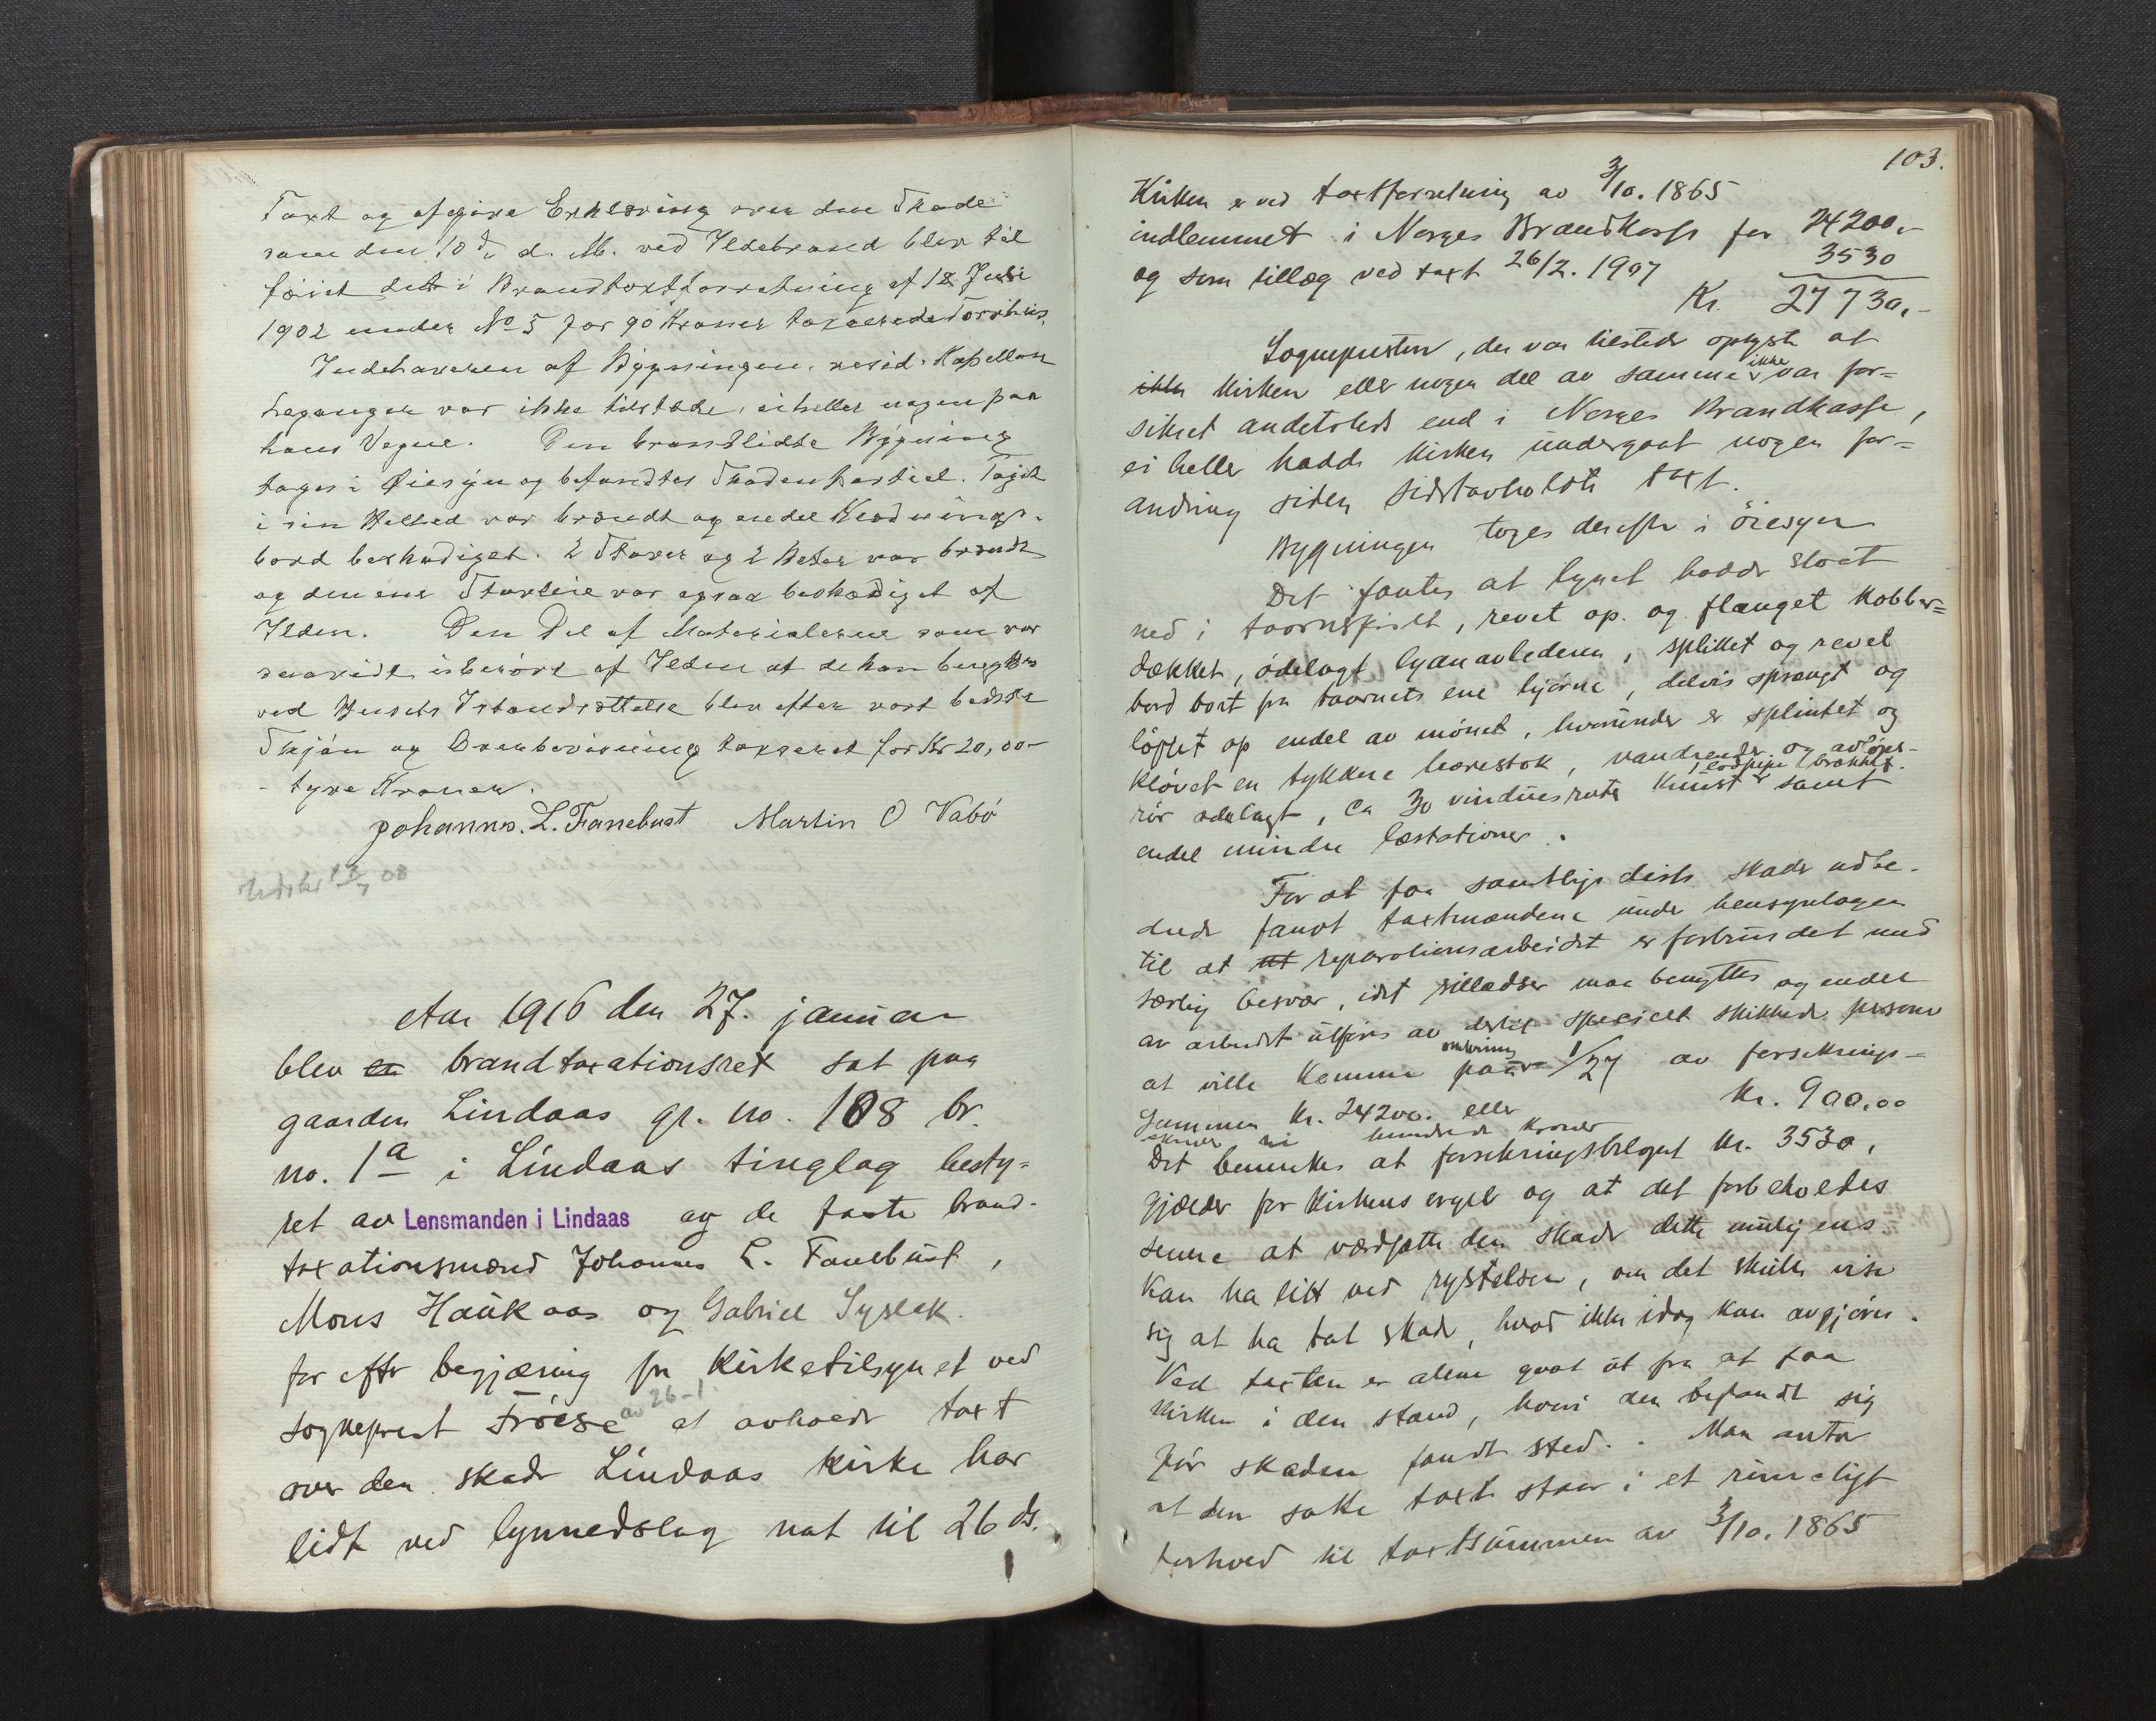 Taxt og afgive Erklæring over den Skade
som den 10de d. M. ved Ildebrand blev til
føiet det i Brandtaxtforretning af 12 Juli
1902 under No 5 for 90 Kroner taxerede Torvhus.
Indehaveren af Bygningen, resid. Kapellan
var ikke tilstede, eiheller nogen paa
hans Vegne. Den brandlidte Bygning
toges i Øiesyn og befandtes Skaden partiel. Taget
i sin Helhed var brændt og endel Klædnings-
bord beskadiget. 2 Staver og 2 Beter var brændt
og den ene Stavleie var ogsaa beskadiget af
Ilden. Den Del af Materialerne som var
saavidt uberørt af Ilden at de kan benyttes
ved Husets Istandsættelse blev efter vort bedste
Skjøn og Overbevisning taxeret for Kr 20,00 -
- tyve Kroner.
Johannes. L. Fanebust Martin O Vabø
Udskr 18/7 08
Aar 1916 den 27. januar
blev en brandtaxationsret sat paa
gaarden Lindaas gr. no. 108 br.
no. 1a i Lindaas tinglag besty-
ret av Lensmanden i Lindaas og de faste brand-
taxationsmænd Johannes L. Fanebust,
Mons Haukaas og Gabriel Syslak
for eftr begjæring fra Kirketilsynet ved
sogneprest Fröise av 26-1. at avholde taxt
over den skade Lindaas kirke har
lidt ved lynnedslag nat til 26 ds.
103.
Kirken er ved taxtforretning av 3/10. 1865
indlemmet i Norges Brandkasse for 24200,-
og som tillæg ved taxt 26/2. 1907 3530
Kr. 27730,-
Sognepresten, der var tilstede oplyste at
ikke kirken eller nogen del av samme ikke var for-
sikret andetsteds end i Norges Brandkasse,
ei heller hadde kirken undergaat nogen for-
andring siden sidstavholdte taxt.
Bygningen toges derefter i öiesyn
Det fantes at lynet hadde slaat
ned i taarnspiret, revet op. og flænget Kobber-
dækket, ödelagt lynavlederen, splittet og revet
bord bort fra taarnets ene hjørne, delvis sprængt og
löftet op endel av mönet, hvorunder er splintet og
klövet en tykkere bærestok, vandrender og avlöps-
rör ödelagt, ca 30 vinduesruter knust, samt
endel mindre læstationer.
For at faa samtlige disse skader udbe-
dred fandt taxtmændene under hensyntagen
til at ut reparationsarbeidet er forbundet med
særlig besvær, idet stilladser maa benyttes og endel
av arbeidet utföres av dertil specielt skikkede personer
at ville komme paa omkring 1/27 av forsikrings-
summen kr. 24200. eller Kr. 900.00
skriver ni hundrede kroner
Det bemerkes at forsikringsbelöpet kr. 3530,
gjælder for Kirkens orgel og at det forbeholdes
senere at værdsætte den skade dette muligens
kan ha lidt ved rystelsen, om det skulde vise
sig at ha tat skade, hvad ikke idag kan avgjøres.
Ved taxten er alene gaat ut fra at faa
kirken i den stand, hvori den befandt sig
för skaden fandt sted. Man antar
at den satte taxt staar i et rimeligt
forhold til taxtsummen av 3/10. 1865